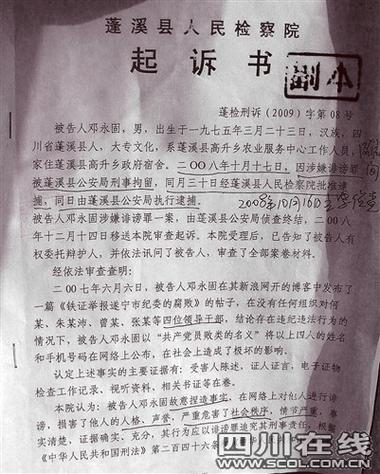 蓬溪县人民检察院
起诉书
副本
蓬检刑诉（2009）字第08号
被告人邓永固，男，出生于一九七五年三月二十三日，汉族，四
川省蓬溪县人，大专文化，系蓬溪县高升乡农业服务中心工作人员，
家住蓬溪县高升乡政府宿舍。二〇〇八年十月十七日，因涉嫌诽谤罪
被蓬溪县公安局刑事拘留，同月三十日经蓬溪县人民检察院批准逮
捕，同日由蓬溪县公安局执行逮捕。
2008年10月16日
被告人邓永固涉嫌诽谤罪一案，由蓬溪县公安局侦查终结，二〇〇八
年十二月十四日移送本院审查起诉。本院受理后，已告知了被告人有
权委托辩护人，并依法讯问了被告人，审查了全部案卷材料。
经依法审查查明：
二〇〇七年六月六日，被告人邓永固在其新浪网开的博客中发布了
一篇《铁证举报遂宁市纪委的腐败》的帖子，在没有任何组织对何
某、朱某沛、曾某、张某等四位领导干部，结论存在违纪违法行为的
情况下，被告人邓永固以“共产党员败类的名义”将以上四人的姓名
和手机号码在网络上公布，在社会上造成了极坏的影响。
认定上述事实的主要证据有：受害人陈述，证人证言，电子证物
检查工作记录、视听资料，相关书证等在卷。
本院认为：被告人邓永固故意捏造事实，在网络上对他人进行诽
谤，损害了他人的人格，声誉，严重危害了社会秩序，情节严重，事
实清楚，证据确实、充分，其行为应以诽谤罪追究其刑事责任，根据
《中华人民共和国刑法》第二百四十六条
四川在线
WWW.SCOL.COM.CN